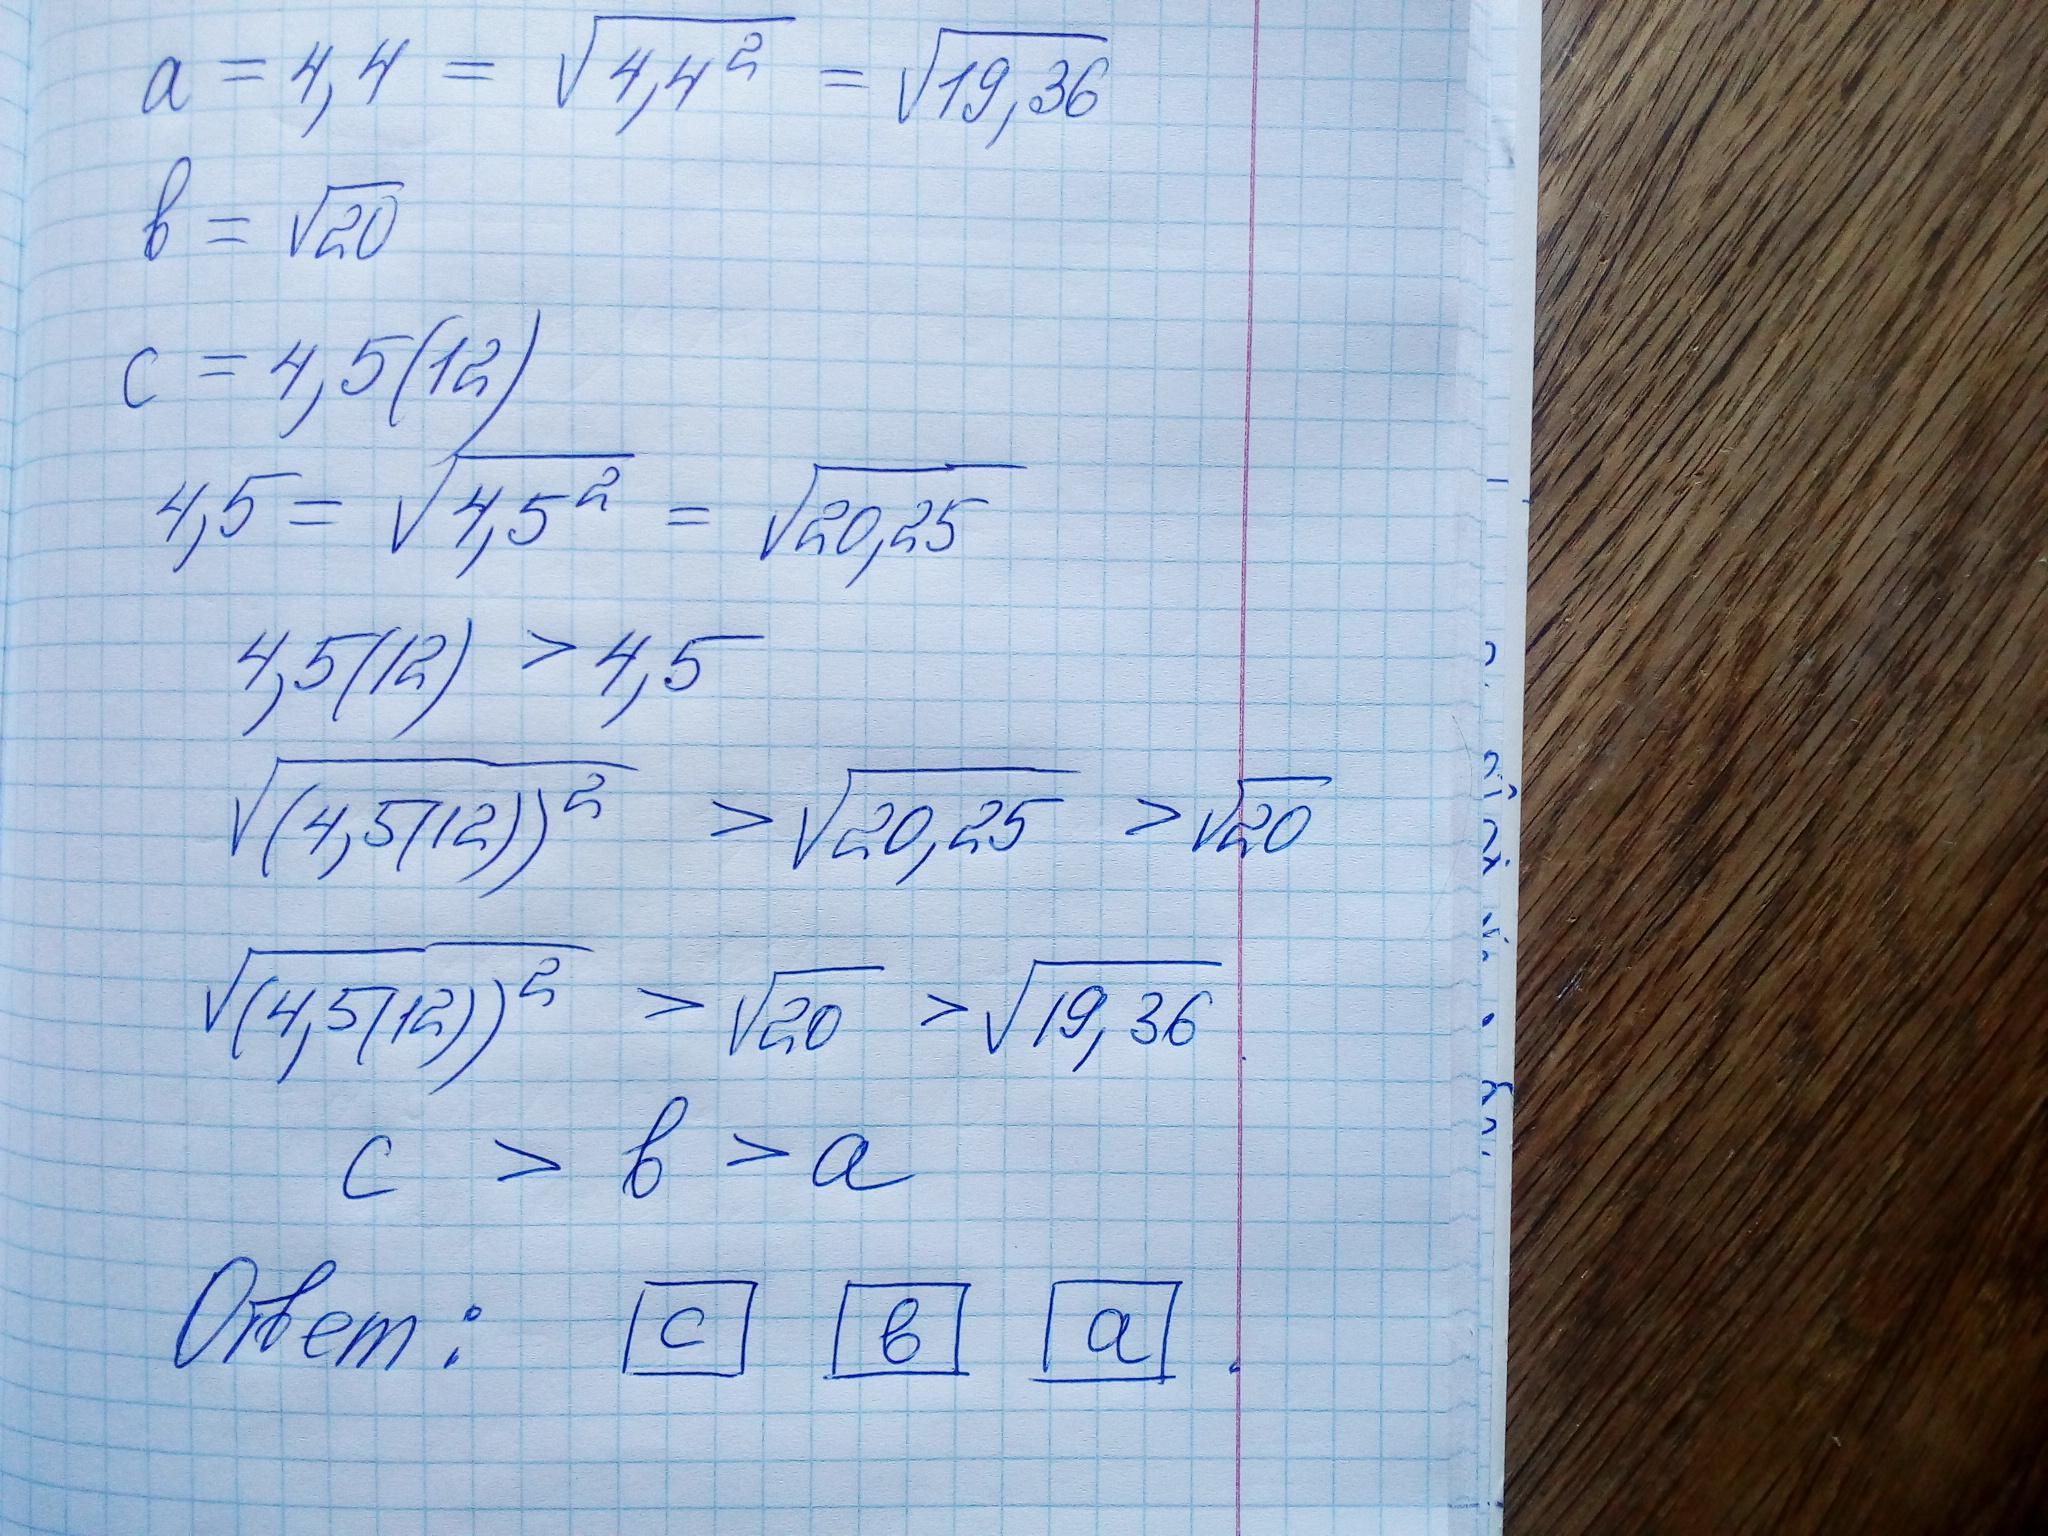 a = 4,4 = √4,4² = √19,36
в = √20
c = 4,5(12)
4,5 = √4,5² = √20,25
4,5(12) > 4,5
√(4,5(12))² > √20,25 > √20
√(4,5(12))² > √20 > √19,36
c > в > a
Ответ: c в a.